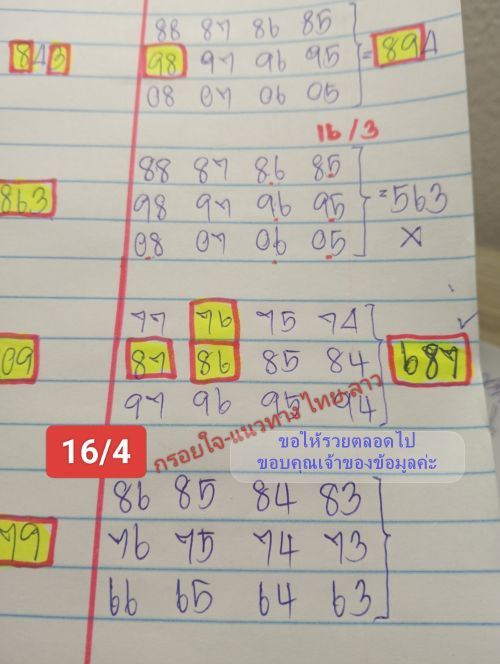 88 87 86 85
843 98 97 96 95 = 894
08 07 06 05
16/3
88 87 86 85
863 98 97 96 95 = 563
08 07 06 05 X
77 76 75 74
09 87 86 85 84 687
97 96 95 94
กรอยใจ-แนวทางไทย-ลาว
16/4
ขอให้รวยตลอดไป
ขอบคุณเจ้าของข้อมูลค่ะ
86 85 84 83
79 76 75 74 73
66 65 64 63